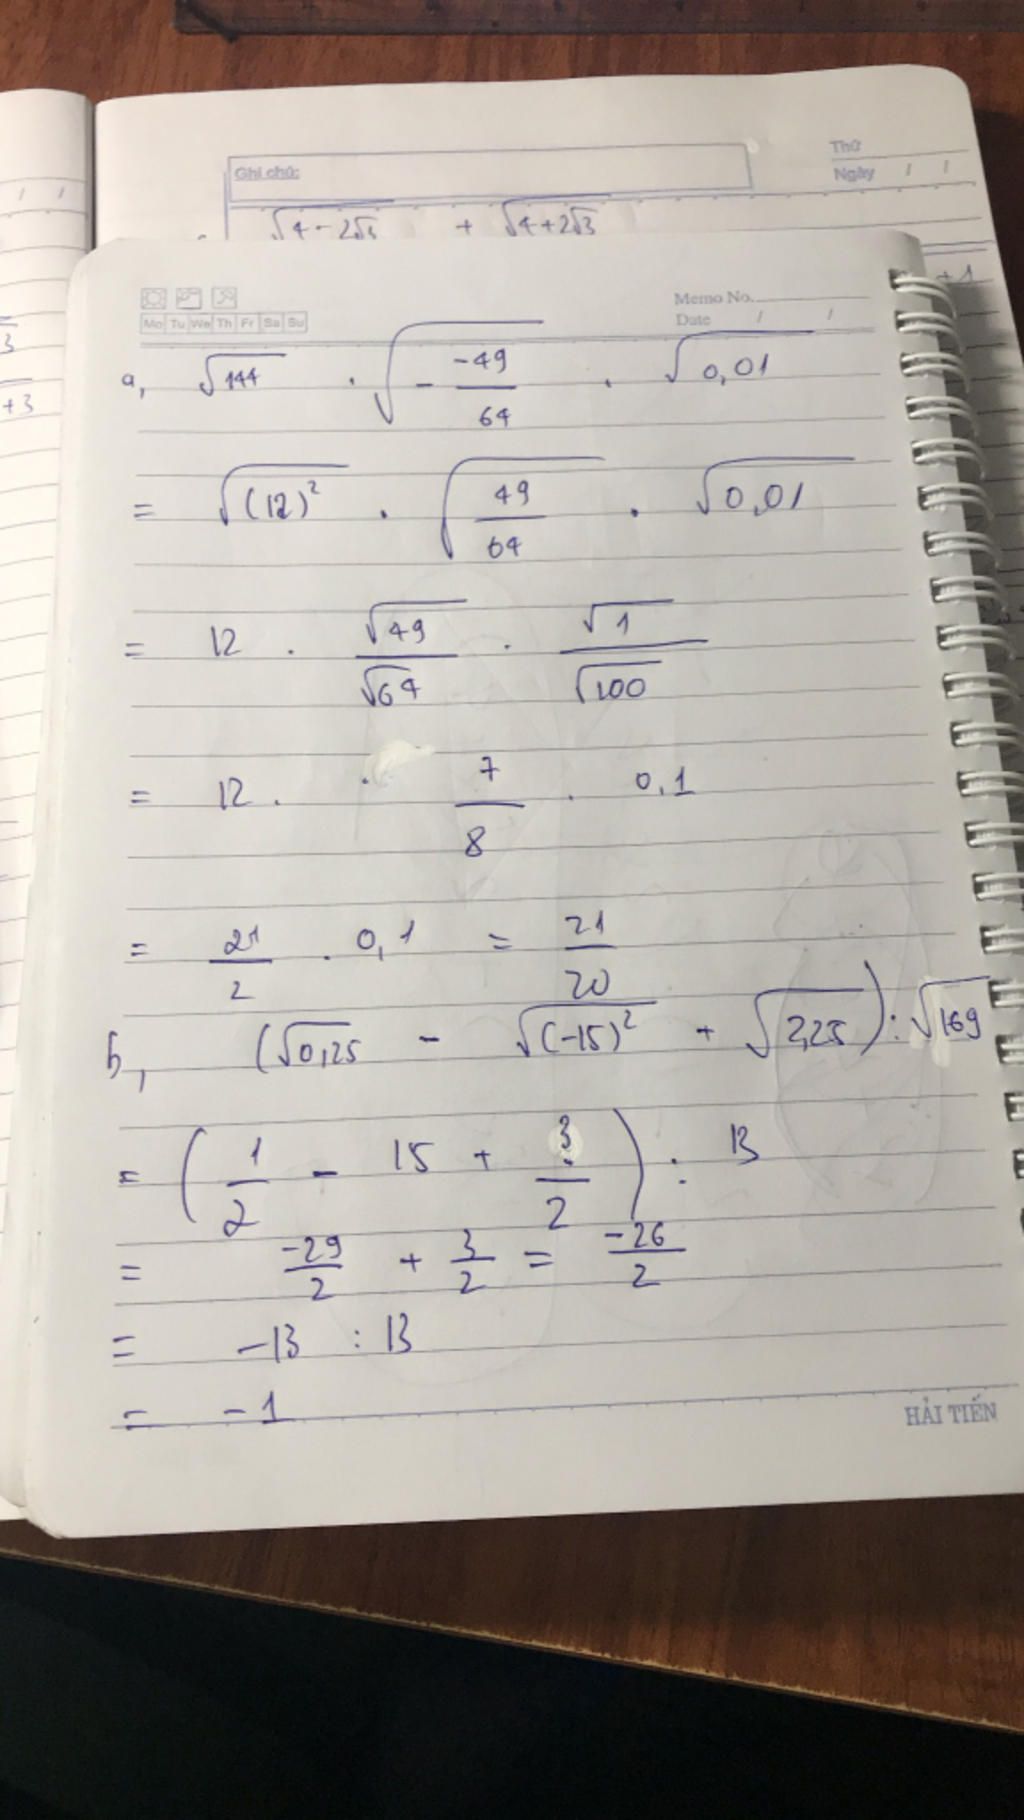 Ghi chú:
Thứ
Ngày / /
√4-2√3 + √4+2√3
+1
3
+3
Memo No.
Mo Tu We Th Fr Sa Su
Date / /
a, √144 . √(- -49/64) . √0,01
= √(12)² . √(49/64) . √0,01
= 12 . √49/√64 . √1/√100
= 12 . . 7/8 . 0,1
= 21/2 . 0,1 = 21/20
b, (√0,25 - √(-15)² + √2,25) : √169
= (1/2 - 15 + 3/2) : 13
= -29/2 + 3/2 = -26/2
= -13 : 13
= -1
HẢI TIẾN